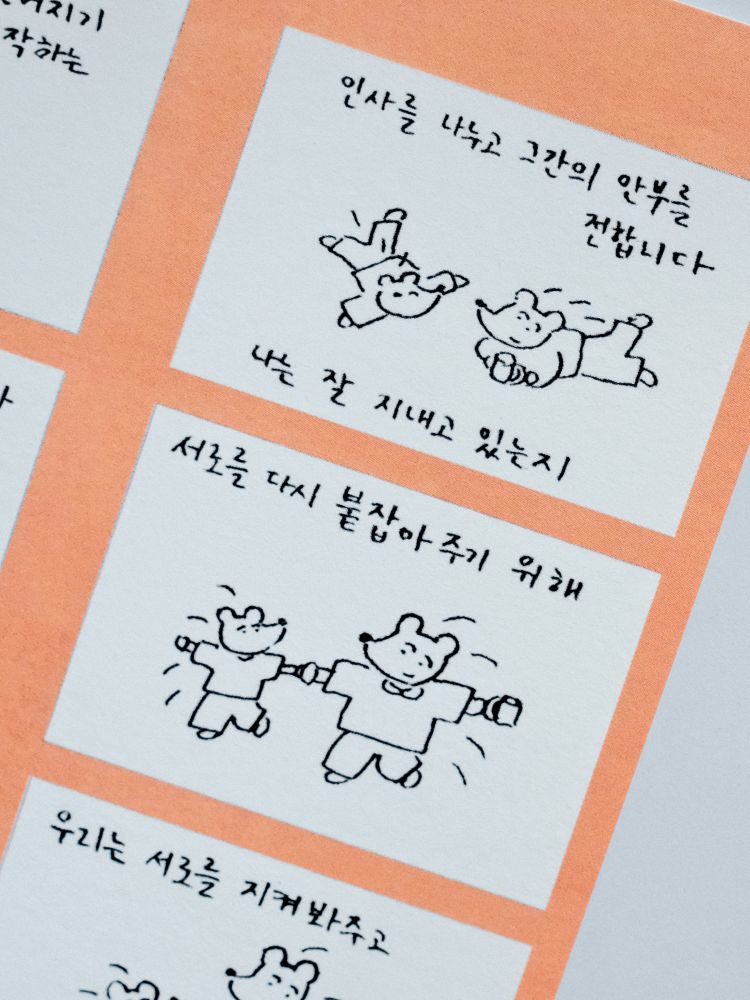 작하는
인사를 나누고 그간의 안부를
전합니다
나는 잘 지내고 있는지
서로를 다시 붙잡아 주기 위해
우리는 서로를 지켜봐주고